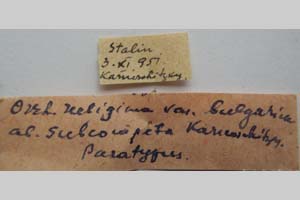 Stalin
3. XI 951
Karnoschitzky.
Orth. rubigina var. bulgarica
ab. subcompleta Karnoschitzky.
Paratypus.